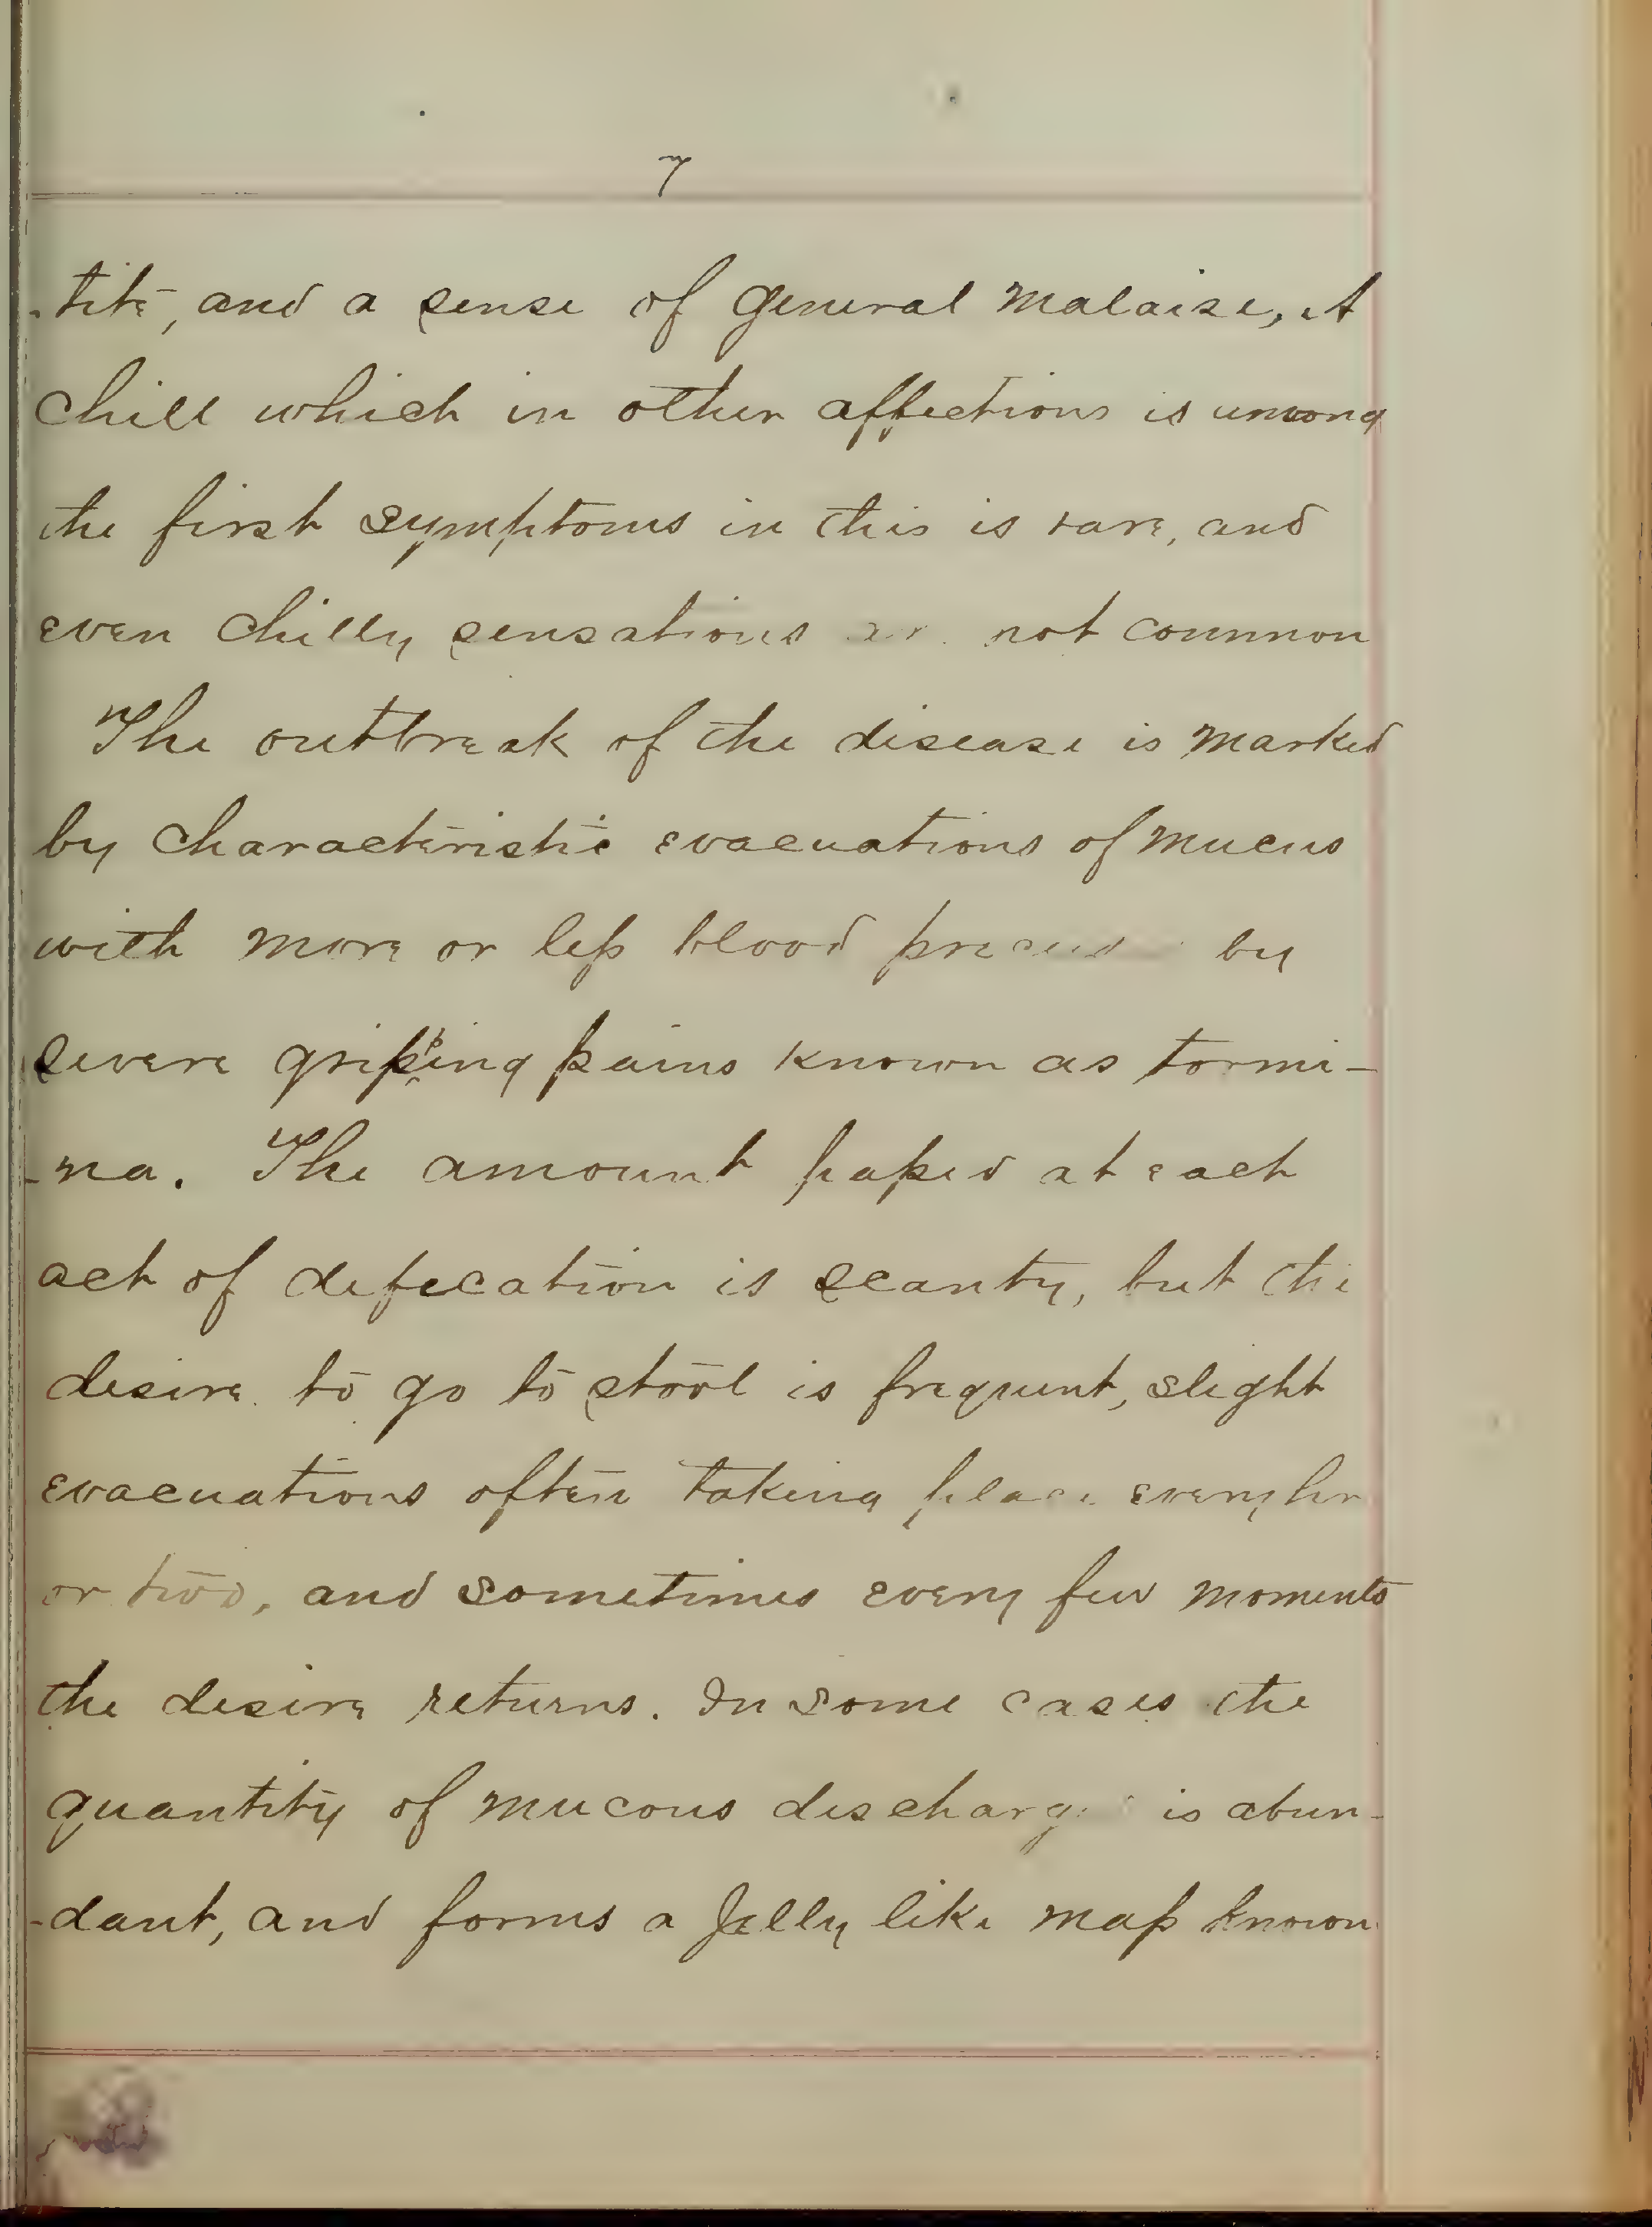 7
-tite, and a sense of general malaise, A
chill which in other affections is among
the first symptoms in this is rare, and
even chilly sensations are not common
The outbreak of the disease is marked
by characteristic evacuations of mucus
with more or less blood preced by
severe gripping pains known as tormi-
-na. The amount passed at each
act of defecation is scanty, but the
desire to go to stool is frequent, slight
evacuations often taking place every hr
or two, and sometimes every few moments
the desire returns. In some cases the
quantity of mucous discharge is abun-
-dant, and forms a Jelly like mass known